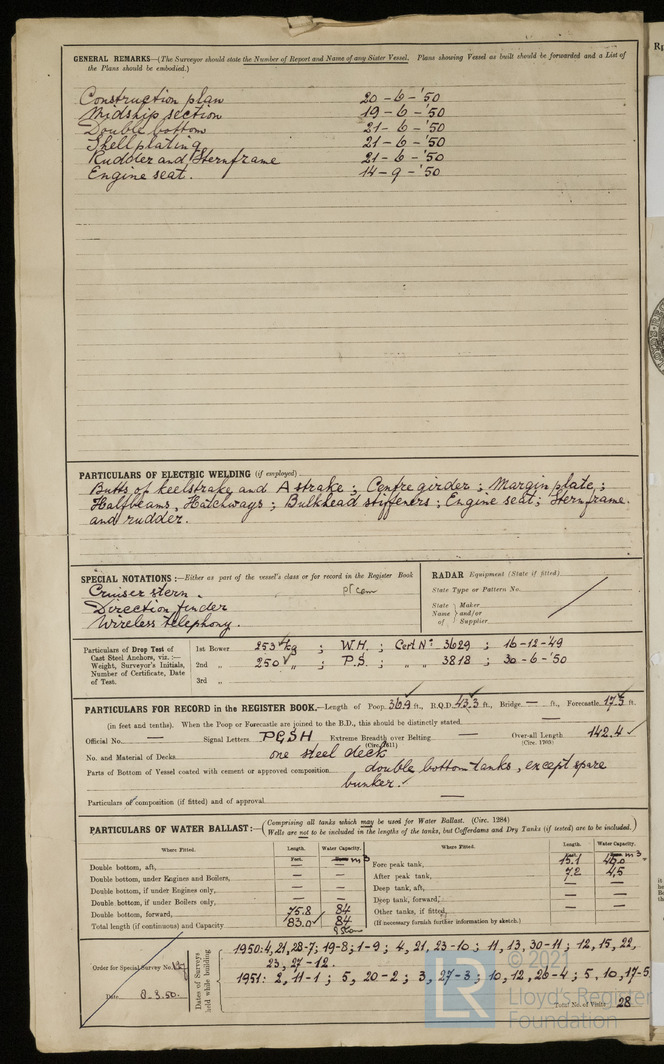 GENERAL REMARKS—(The Surveyor should state the Number of Report and Name of any Sister Vessel. Plans showing Vessel as built should be forwarded and a List of
the Plans should be embodied.)
Construction plan 20-6-'50
Midship section 19-6-'50
Double bottom 21-6-'50
Shellplating 21-6-'50
Rudder and Sternframe 21-6-'50
Engine seat. 14-9-'50
PARTICULARS OF ELECTRIC WELDING (if employed)
Butts of keelstrake and A strake; Centre girder; Margin plate;
Halfbeams, Hatchways; Bulkhead stiffeners; Engine seat; Sternframe
and rudder.
SPECIAL NOTATIONS:—Either as part of the vessel's class or for record in the Register Book
Cruiser stern.
Direction finder
Wireless telephony.
RADAR Equipment (State if fitted)
State Type or Pattern No.
State Maker
Name and/or
of Supplier
Particulars of Drop Test of
Cast Steel Anchors, viz.:—
Weight, Surveyor's Initials,
Number of Certificate, Date
of Test.
1st Bower 253 kg ; W.H. ; Cert No: 3629 ; 16-12-'49
2nd „ 250 „ ; P.S. ; „ „ 3818 ; 30-6-'50
3rd „
PARTICULARS FOR RECORD in the REGISTER BOOK.—Length of Poop 36.9 ft., R.Q.D. 43.3 ft., Bridge — ft., Forecastle 17.5 ft.
(in feet and tenths). When the Poop or Forecastle are joined to the B.D., this should be distinctly stated —
Official No. — Signal Letters PGSH Extreme Breadth over Belting — Over-all Length 142.4
(Circ. 1611) (Circ. 1703)
No. and Material of Decks one steel deck
Parts of Bottom of Vessel coated with cement or approved composition double bottom tanks, except spare
bunker.
Particulars of composition (if fitted) and of approval —
PARTICULARS OF WATER BALLAST:—(Comprising all tanks which may be used for Water Ballast. (Circ. 1284)
Wells are not to be included in the lengths of the tanks, but Cofferdams and Dry Tanks (if tested) are to be included.)
Where Fitted. Length. Water Capacity. Where Fitted. Length. Water Capacity.
Feet. m3 Feet. m3
Double bottom, aft, — — Fore peak tank, 13.1
Double bottom, under Engines and Boilers, — — After peak tank, 7.2 45
Double bottom, if under Engines only, — — Deep tank, aft, — —
Double bottom, if under Boilers only, — — Deep tank, forward, — —
Double bottom, forward, 75.8 84 Other tanks, if fitted, — —
Total length (if continuous) and Capacity 83.0 84 (If necessary furnish further information by sketch.)
Order for Special Survey No.
Date 8.8.50.
Dates of Surveys
held while building
1950: 4, 21, 28-7; 19-8; 1-9; 4, 21, 23-10; 11, 13, 30-11; 12, 15, 22,
23, 27-12.
1951: 2, 11-1; 5, 20-2; 3, 27-3; 10, 12, 26-4; 5, 10, 17-5
Total No. of Visits 28
© 2021
LR
Lloyd's Register
Foundation